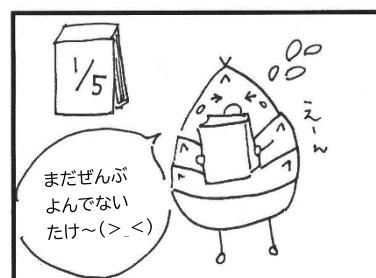 1/5
えーん
まだぜんぶ
よんでない
たけ〜(>_<)